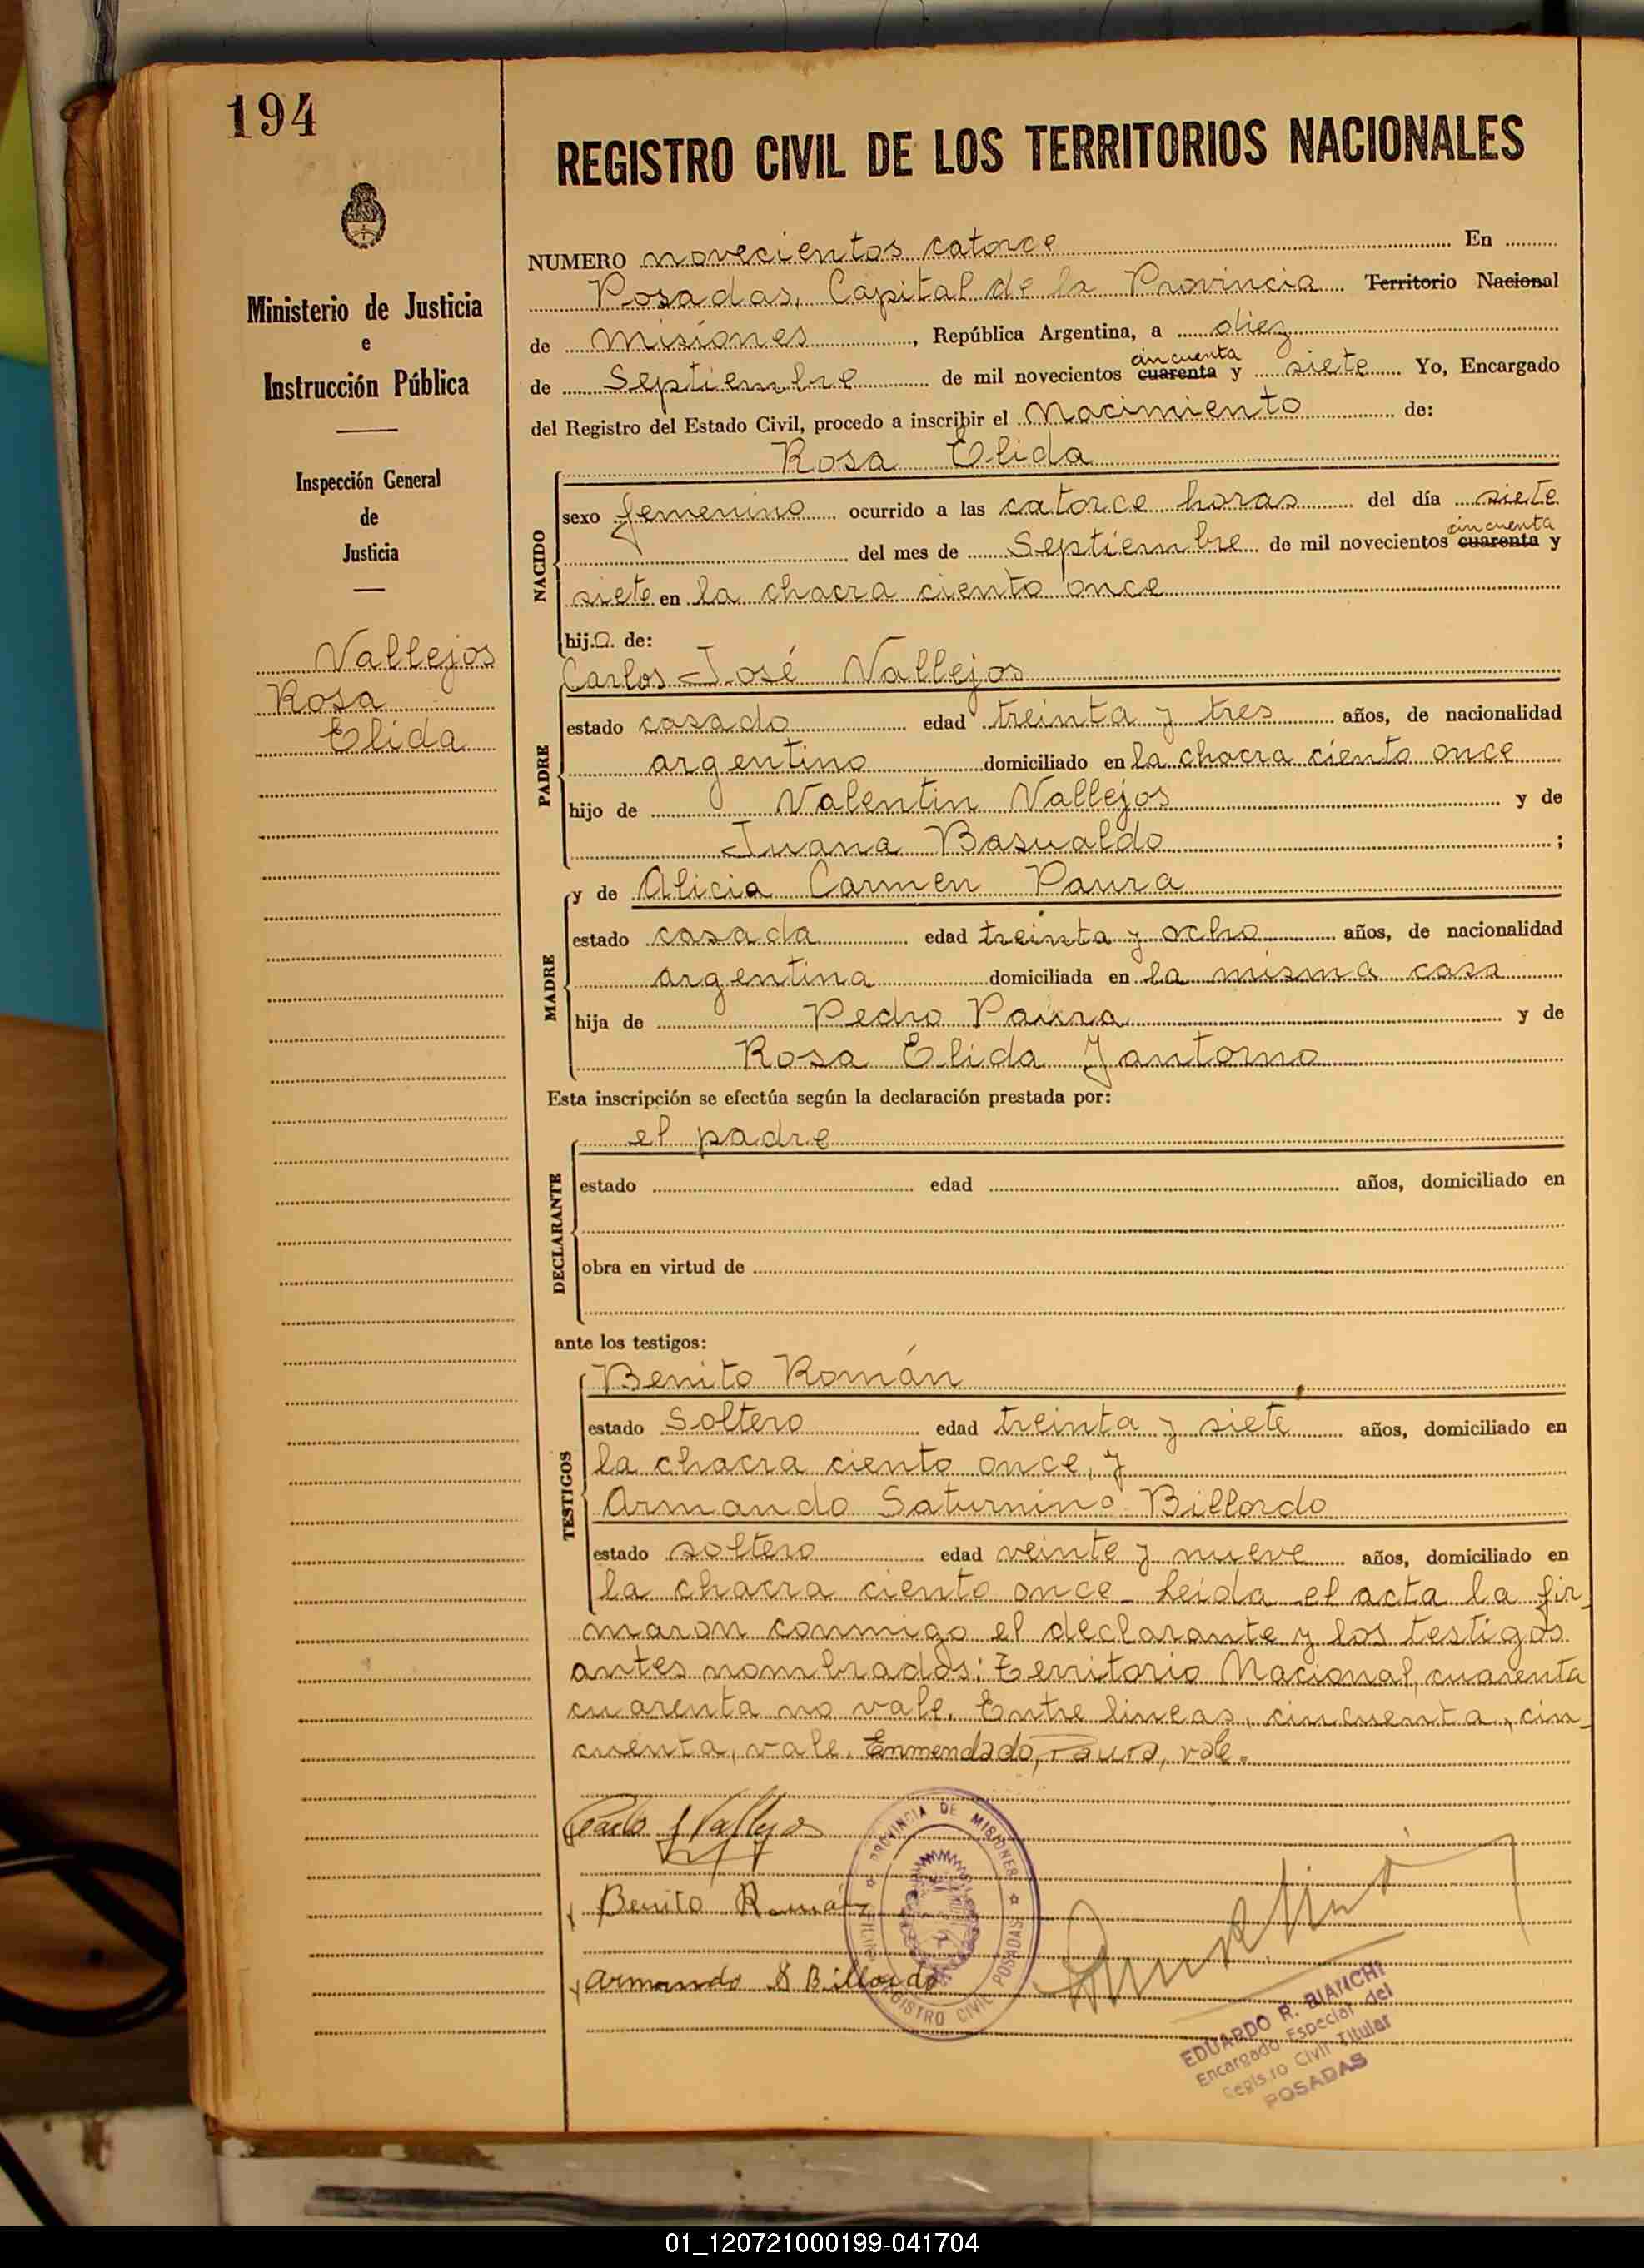 194
Ministerio de Justicia
e
Instrucción Pública
Inspección General
de
Justicia
Vallejos
Rosa
Elida
REGISTRO CIVIL DE LOS TERRITORIOS NACIONALES
NUMERO novecientos catorce En
Posadas, Capital de la Provincia Territorio Nacional
de Misiones, República Argentina, a diez
cincuenta
de Septiembre de mil novecientos cuarenta y siete Yo, Encargado
del Registro del Estado Civil, procedo a inscribir el Nacimiento de:
Rosa Elida
NACIDO
sexo femenino ocurrido a las catorce horas del día siete
cincuenta
del mes de Septiembre de mil novecientos cuarenta y
siete en la chacra ciento once
hija de:
Carlos José Vallejos
PADRE
estado casado edad treinta y tres años, de nacionalidad
argentino domiciliado en la chacra ciento once
hijo de Valentin Vallejos y de
Juana Basualdo ;
y de Alicia Carmen Paura
MADRE
estado casada edad treinta y ocho años, de nacionalidad
argentina domiciliada en la misma casa
hija de Pedro Paura y de
Rosa Elida Yantorno
Esta inscripción se efectúa según la declaración prestada por:
el padre
DECLARANTE
estado edad años, domiciliado en
obra en virtud de
ante los testigos:
Benito Román
TESTIGOS
estado soltero edad treinta y siete años, domiciliado en
la chacra ciento once, y
Armando Saturnino Billordo
estado soltero edad veinte y nueve años, domiciliado en
la chacra ciento once Leída el acta la fir-
maron conmigo el declarante y los testigos
antes nombrados: Territorio Nacional, cuarenta
cuarenta no vale. Entre lineas, cincuenta, cin-
cuenta, vale. Enmendado, Paura, vale.
Carlos J Vallejos
Benito Román
Armando S Billordo
PROVINCIA DE MISIONES
REGISTRO CIVIL POSADAS
EDUARDO R. BIANCHI
Encargado Especial del
Registro Civil Titular
POSADAS
01_120721000199-041704